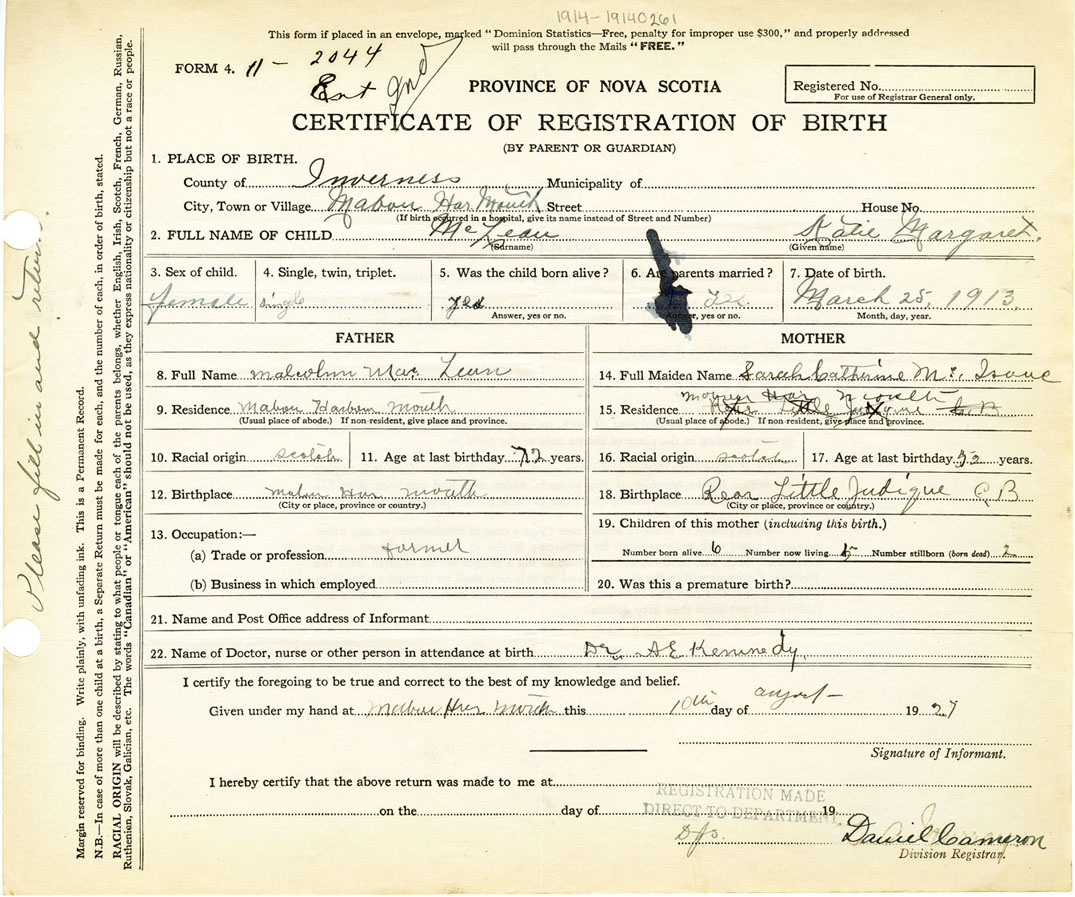 1914-19140261
This form if placed in an envelope, marked "Dominion Statistics—Free, penalty for improper use $300," and properly addressed
will pass through the Mails "FREE."
FORM 4. 11 - 2044
Ent
PROVINCE OF NOVA SCOTIA
Registered No.
For use of Registrar General only.
CERTIFICATE OF REGISTRATION OF BIRTH
(BY PARENT OR GUARDIAN)
1. PLACE OF BIRTH.
County of Inverness Municipality of
City, Town or Village Mabou Har Mouth Street House No.
(If birth occurred in a hospital, give its name instead of Street and Number)
2. FULL NAME OF CHILD McLean Katie Margaret.
(Surname) (Given name)
3. Sex of child. 4. Single, twin, triplet. 5. Was the child born alive? 6. Are parents married? 7. Date of birth.
female single yes yes March 25, 1913.
Answer, yes or no. Answer, yes or no. Month, day, year.
FATHER
8. Full Name Malcolm Mac Lean
9. Residence Mabou Harbour Mouth
(Usual place of abode.) If non-resident, give place and province.
10. Racial origin scotch 11. Age at last birthday 72 years.
12. Birthplace Mabou Har Mouth
(City or place, province or country.)
13. Occupation:—
(a) Trade or profession farmer
(b) Business in which employed
MOTHER
14. Full Maiden Name Sarah Catherine Mc. Isaac
Mabou Har Mouth
15. Residence Rear Little Judique C.B
(Usual place of abode.) If non-resident, give place and province.
16. Racial origin scotch 17. Age at last birthday years.
18. Birthplace Rear Little Judique C B
(City or place, province or country.)
19. Children of this mother (including this birth.)
Number born alive 6 Number now living 5 Number stillborn (born dead) 2
20. Was this a premature birth?
21. Name and Post Office address of Informant
22. Name of Doctor, nurse or other person in attendance at birth Dr. AE Kennedy.
I certify the foregoing to be true and correct to the best of my knowledge and belief.
Given under my hand at Mabou Har Mouth this 10th day of august 1927
Signature of Informant.
I hereby certify that the above return was made to me at
REGISTRATION MADE
DIRECT TO DEPARTMENT.
on the day of 19
Daniel Cameron
Division Registrar.
Please fill in and return.
Margin reserved for binding. Write plainly, with unfading ink. This is a Permanent Record.
N.B.—In case of more than one child at a birth, a Separate Return must be made for each, and the number of each, in order of birth, stated.
RACIAL ORIGIN will be described by stating to what people or tongue each of the parents belongs, whether English, Irish, Scotch, French, German, Russian,
Ruthenian, Slovak, Galician, etc. The words "Canadian" or "American" should not be used, as they express nationality or citizenship but not a race or people.